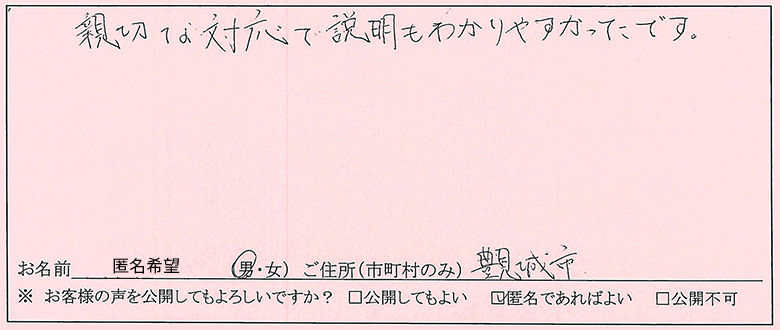 親切な対応で説明もわかりやすかったです。
お名前 匿名希望 (男・女) ご住所(市町村のみ) 豊見城市
※ お客様の声を公開してもよろしいですか? □公開してもよい ☑匿名であればよい □公開不可